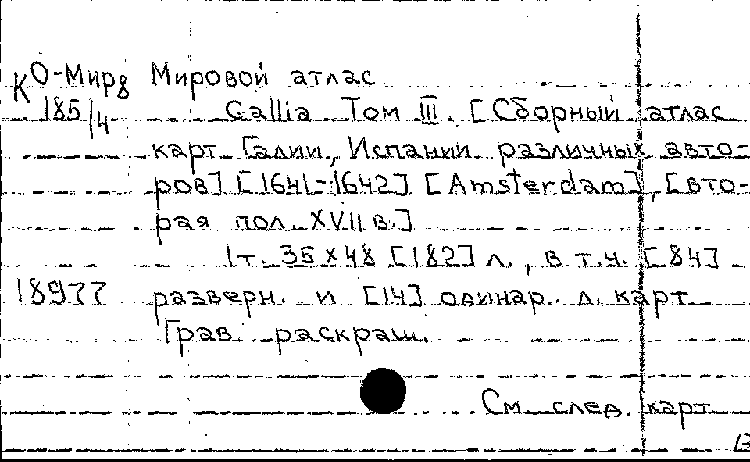 К О-Мир8 Мировой атлас
185/4 Gallia Том III. [Сборный атлас
карт Галии, Испании различных авто-
ров] [1641-1642] [Amsterdam], [вто-
рая пол. XVII в.]
1т. 35х48 [182] л., в т.ч. [84]
18977 разверн. и [14] одинар. л. карт
Грав. раскраш.
См. след. карт